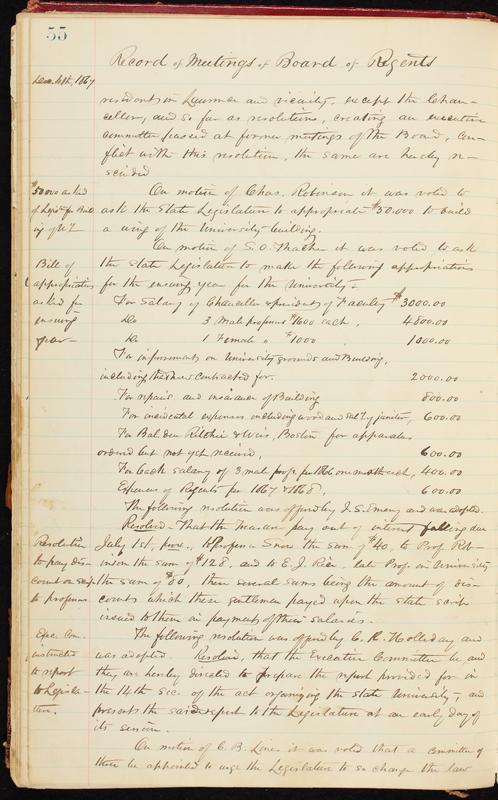 55
Record of Meetings of Board of Regents
Dec. 4th, 1867
residents in Lawrence and vicinity, except the Chan-
cellor, and so far as resolutions, creating an executive
committee passed at former meetings of the Board, con-
flict with this resolution, the same are hereby re-
scinded
$30000 asked
of Legis for Build
ing of U.
On motion of Chas. Robinson it was voted to
ask the State Legislature to appropriate $30.000 to build
a wing of the University building.
Bill of
appropriations
asked for
ensuing
year—
On motion of S.O. Thacher it was voted to ask
the State Legislature to make the following appropriations
for the ensuing year for the University:
For Salary of Chancellor & president of Faculty $3000.00
Do 3 Male professors $1600 each, 4800.00
Do 1 Female " $1000 1000.00
For improvements on University grounds and Building,
including the contracted for. 2000.00
For repairs and insurance of Building 800.00
For incidental expenses including wood and sal'y of janitor, 600.00
For Bal. due Ritchie & Bros., Boston for apparatus
ordered but not yet received, 600.00
For back salary of 3 male profs for 1866 one month each, 400.00
Expenses of Regents for 1867 & 1868, 600.00
The following resolution was offered by J. S. Emery and was adopted.
Resolution
to pay dis-
count on
to professors
Resolved. That the Treasurer pay out of interest falling due
July 1st, prox., to Professor Snow the sum of $40, to Prof. Rob-
inson the sum of $128. and to E. J. Rice, late Prof. in University
the sum of $80, these several sums being the amount of dis-
counts which these gentlemen payed upon the state scrip
issued to them in payments of their salaries.
Exec. Com.
instructed
to report
to Legisla-
ture.
The following resolution was offered by C. R. Holleday and
was adopted. Resolved, that the Executive Committee be and
they are hereby directed to prepare the report provided for in
the 14th Sec. of the act organizing the State University, and
presents the said report to the Legislature at an early day of
its session.
On motion of C. B. Lines it was voted that a committee of
three be appointed to urge the Legislature to so change the law